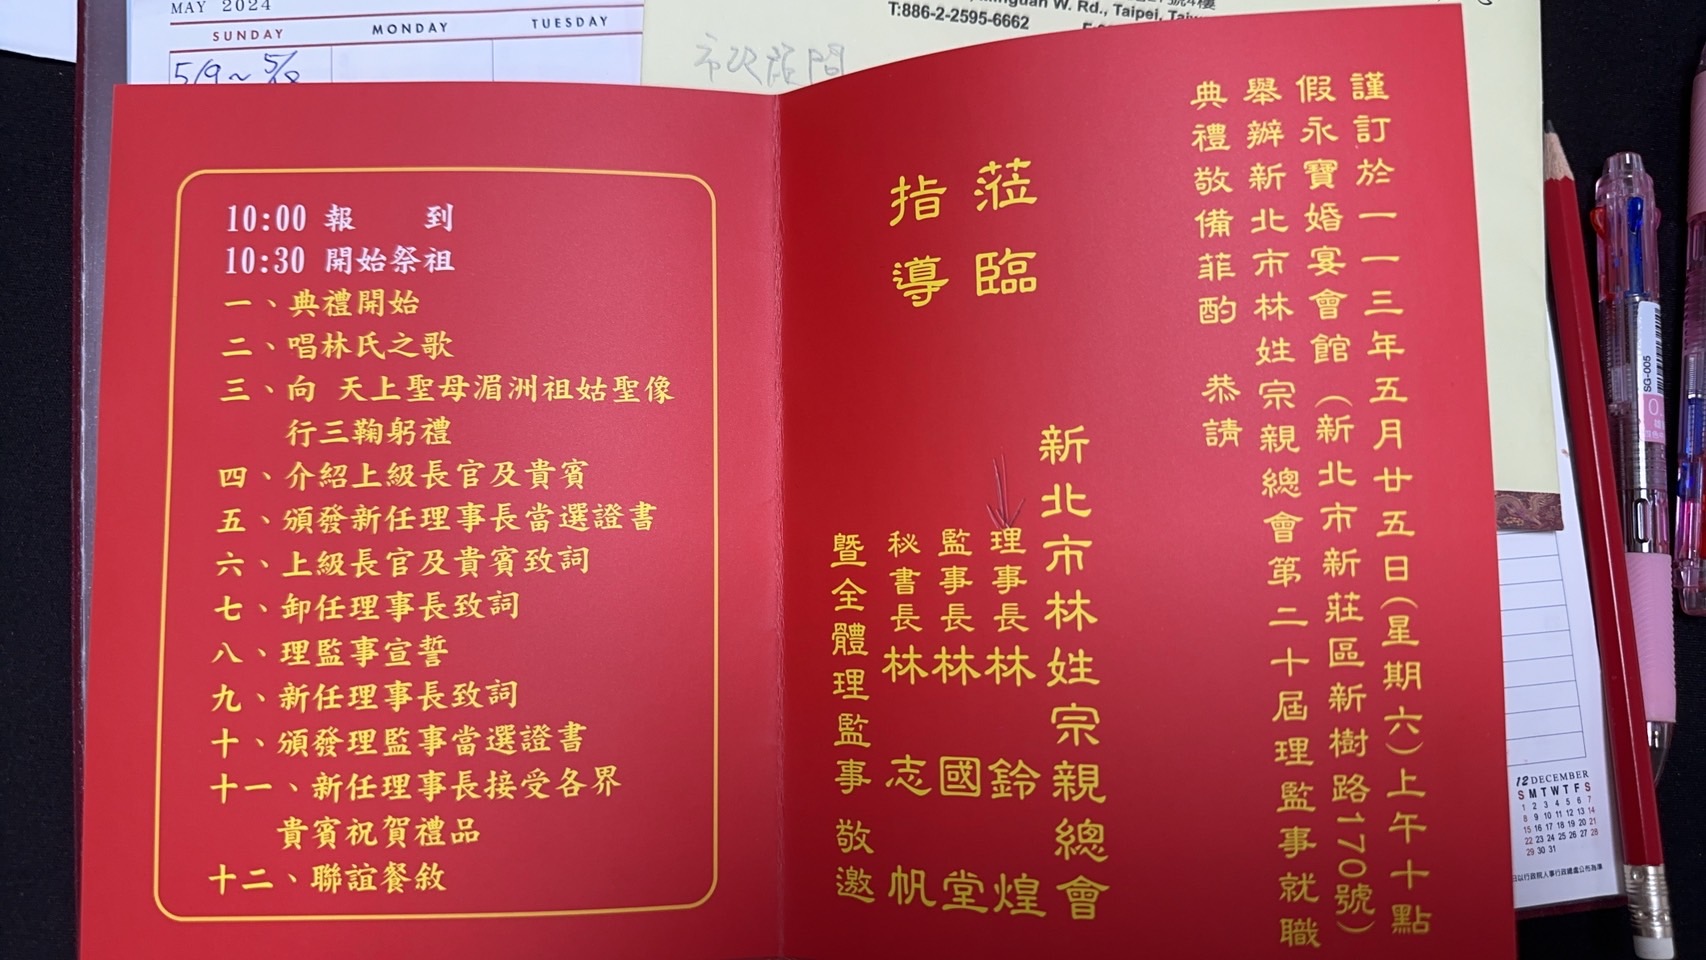 MAY 2024
SUNDAY MONDAY TUESDAY
5/9~5/18
Rd., Taipei,
T:886-2-2595-6662
謹訂於一一三年五月廿五日(星期六)上午十點
假永寶婚宴會館(新北市新莊區新樹路170號)
舉辦新北市林姓宗親總會第二十屆理監事就職
典禮敬備菲酌 恭請
蒞臨
指導
新北市林姓宗親總會
理事長林 鈴 煌
監事長林 國 堂
秘書長林 志 帆
暨全體理監事 敬邀
10:00 報 到
10:30 開始祭祖
一、典禮開始
二、唱林氏之歌
三、向 天上聖母湄洲祖姑聖像
行三鞠躬禮
四、介紹上級長官及貴賓
五、頒發新任理事長當選證書
六、上級長官及貴賓致詞
七、卸任理事長致詞
八、理監事宣誓
九、新任理事長致詞
十、頒發理監事當選證書
十一、新任理事長接受各界
貴賓祝賀禮品
十二、聯誼餐敘
SG-005
12 DECEMBER
S M T W T F S
1 2 3 4 5 6 7
8 9 10 11 12 13 14
15 16 17 18 19 20 21
22 23 24 25 26 27 28
29 30 31